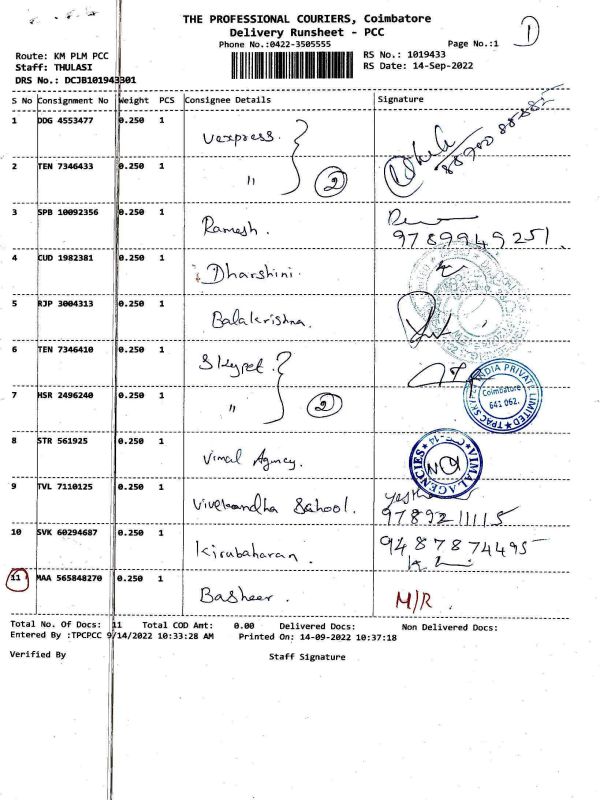 THE PROFESSIONAL COURIERS, Coimbatore
Delivery Runsheet - PCC
Phone No.:0422-3505555
Page No.:1
1
Route: KM PLM PCC
RS No.: 1019433
Staff: THULASI
RS Date: 14-Sep-2022
DRS No.: DCJB101943301
S No Consignment No Weight PCS Consignee Details Signature
1 DDG 4553477 0.250 1 Vexpress.
2 TEN 7346433 0.250 1 " 2
3 SPB 10092356 0.250 1 Ramesh. 9789949251.
4 CUD 1982381 0.250 1 Dharshini.
5 RJP 3004313 0.250 1 Balakrishna.
6 TEN 7346410 0.250 1 Skyret.
7 HSR 2496240 0.250 1 " 2
INDIA PRIVATE LIMITED
Coimbatore
641 062.
8 STR 561925 0.250 1 Vimal Agency.
VIMAL AGENCIES
9 TVL 7110125 0.250 1 Vivekandha School.
9789211115
10 SVK 60294687 0.250 1 Kirubaharan. 9487874495
11 MAA 565848270 0.250 1 Basheer. M/R.
Total No. Of Docs: 11 Total COD Amt: 0.00 Delivered Docs: Non Delivered Docs:
Entered By :TPCPCC 9/14/2022 10:33:28 AM Printed On: 14-09-2022 10:37:18
Verified By Staff Signature